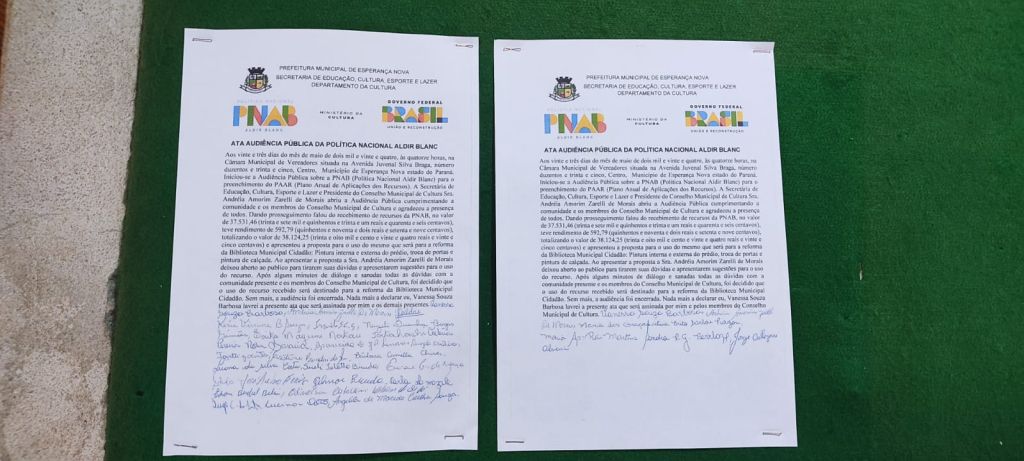 PREFEITURA MUNICIPAL DE ESPERANÇA NOVA
SECRETARIA DE EDUCAÇÃO, CULTURA, ESPORTE E LAZER
DEPARTAMENTO DA CULTURA
PNAB
ALDIR BLANC
MINISTÉRIO DA
CULTURA
GOVERNO FEDERAL
BRASIL
UNIÃO E RECONSTRUÇÃO
ATA AUDIÊNCIA PÚBLICA DA POLÍTICA NACIONAL ALDIR BLANC
Aos vinte e três dias do mês de maio de dois mil e vinte e quatro, às quatorze horas, na
Câmara Municipal de Vereadores situada na Avenida Juvenal Silva Braga, número
duzentos e trinta e cinco, Centro, Município de Esperança Nova estado do Paraná.
Iniciou-se a Audiência Pública sobre a PNAB (Política Nacional Aldir Blanc) para o
preenchimento do PAAR (Plano Anual de Aplicações dos Recursos). A Secretária de
Educação, Cultura, Esporte e Lazer e Presidente do Conselho Municipal de Cultura Sra.
Andréia Amorim Zarelli de Morais abriu a Audiência Pública cumprimentando a
comunidade e os membros do Conselho Municipal de Cultura e agradeceu a presença
de todos. Dando prosseguimento falou do recebimento de recursos da PNAB, no valor
de 37.531,46 (trinta e sete mil e quinhentos e trinta e um reais e quarenta e seis centavos),
teve rendimento de 592,79 (quinhentos e noventa e dois reais e setenta e nove centavos),
totalizando o valor de 38.124,25 (trinta e oito mil e cento e vinte e quatro reais e vinte e
cinco centavos) e apresentou a proposta para o uso do mesmo que será para a reforma
da Biblioteca Municipal Cidadão: Pintura interna e externa do prédio, troca de portas e
pintura de calçada. Ao apresentar a proposta a Sra. Andréia Amorim Zarelli de Morais
deixou aberto ao publico para tirarem suas dúvidas e apresentarem sugestões para o uso
do recurso. Após alguns minutos de diálogo e sanadas todas as dúvidas com a
comunidade presente e os membros do Conselho Municipal de Cultura, foi decidido que
o uso do recurso recebido será destinado para a reforma da Biblioteca Municipal
Cidadão. Sem mais, a audiência foi encerrada. Nada mais a declarar eu, Vanessa Souza
Barbosa lavrei a presente ata que será assinada por mim e os demais presentes. Vanessa
Souza Barbosa,
PREFEITURA MUNICIPAL DE ESPERANÇA NOVA
SECRETARIA DE EDUCAÇÃO, CULTURA, ESPORTE E LAZER
DEPARTAMENTO DA CULTURA
PNAB
ALDIR BLANC
MINISTÉRIO DA
CULTURA
GOVERNO FEDERAL
BRASIL
UNIÃO E RECONSTRUÇÃO
ATA AUDIÊNCIA PÚBLICA DA POLÍTICA NACIONAL ALDIR BLANC
Aos vinte e três dias do mês de maio de dois mil e vinte e quatro, às quatorze horas, na
Câmara Municipal de Vereadores situada na Avenida Juvenal Silva Braga, número
duzentos e trinta e cinco, Centro, Município de Esperança Nova estado do Paraná.
Iniciou-se a Audiência Pública sobre a PNAB (Política Nacional Aldir Blanc) para o
preenchimento do PAAR (Plano Anual de Aplicações dos Recursos). A Secretária de
Educação, Cultura, Esporte e Lazer e Presidente do Conselho Municipal de Cultura Sra.
Andréia Amorim Zarelli de Morais abriu a Audiência Pública cumprimentando a
comunidade e os membros do Conselho Municipal de Cultura e agradeceu a presença
de todos. Dando prosseguimento falou do recebimento de recursos da PNAB, no valor
de 37.531,46 (trinta e sete mil e quinhentos e trinta e um reais e quarenta e seis centavos),
teve rendimento de 592,79 (quinhentos e noventa e dois reais e setenta e nove centavos),
totalizando o valor de 38.124,25 (trinta e oito mil e cento e vinte e quatro reais e vinte e
cinco centavos) e apresentou a proposta para o uso do mesmo que será para a reforma
da Biblioteca Municipal Cidadão: Pintura interna e externa do prédio, troca de portas e
pintura de calçada. Ao apresentar a proposta a Sra. Andréia Amorim Zarelli de Morais
deixou aberto ao publico para tirarem suas dúvidas e apresentarem sugestões para o uso
do recurso. Após alguns minutos de diálogo e sanadas todas as dúvidas com a
comunidade presente e os membros do Conselho Municipal de Cultura, foi decidido que
o uso do recurso recebido será destinado para a reforma da Biblioteca Municipal
Cidadão. Sem mais, a audiência foi encerrada. Nada mais a declarar eu, Vanessa Souza
Barbosa lavrei a presente ata que será assinada por mim e pelos membros do Conselho
Municipal de Cultura. Vanessa Souza Barbosa